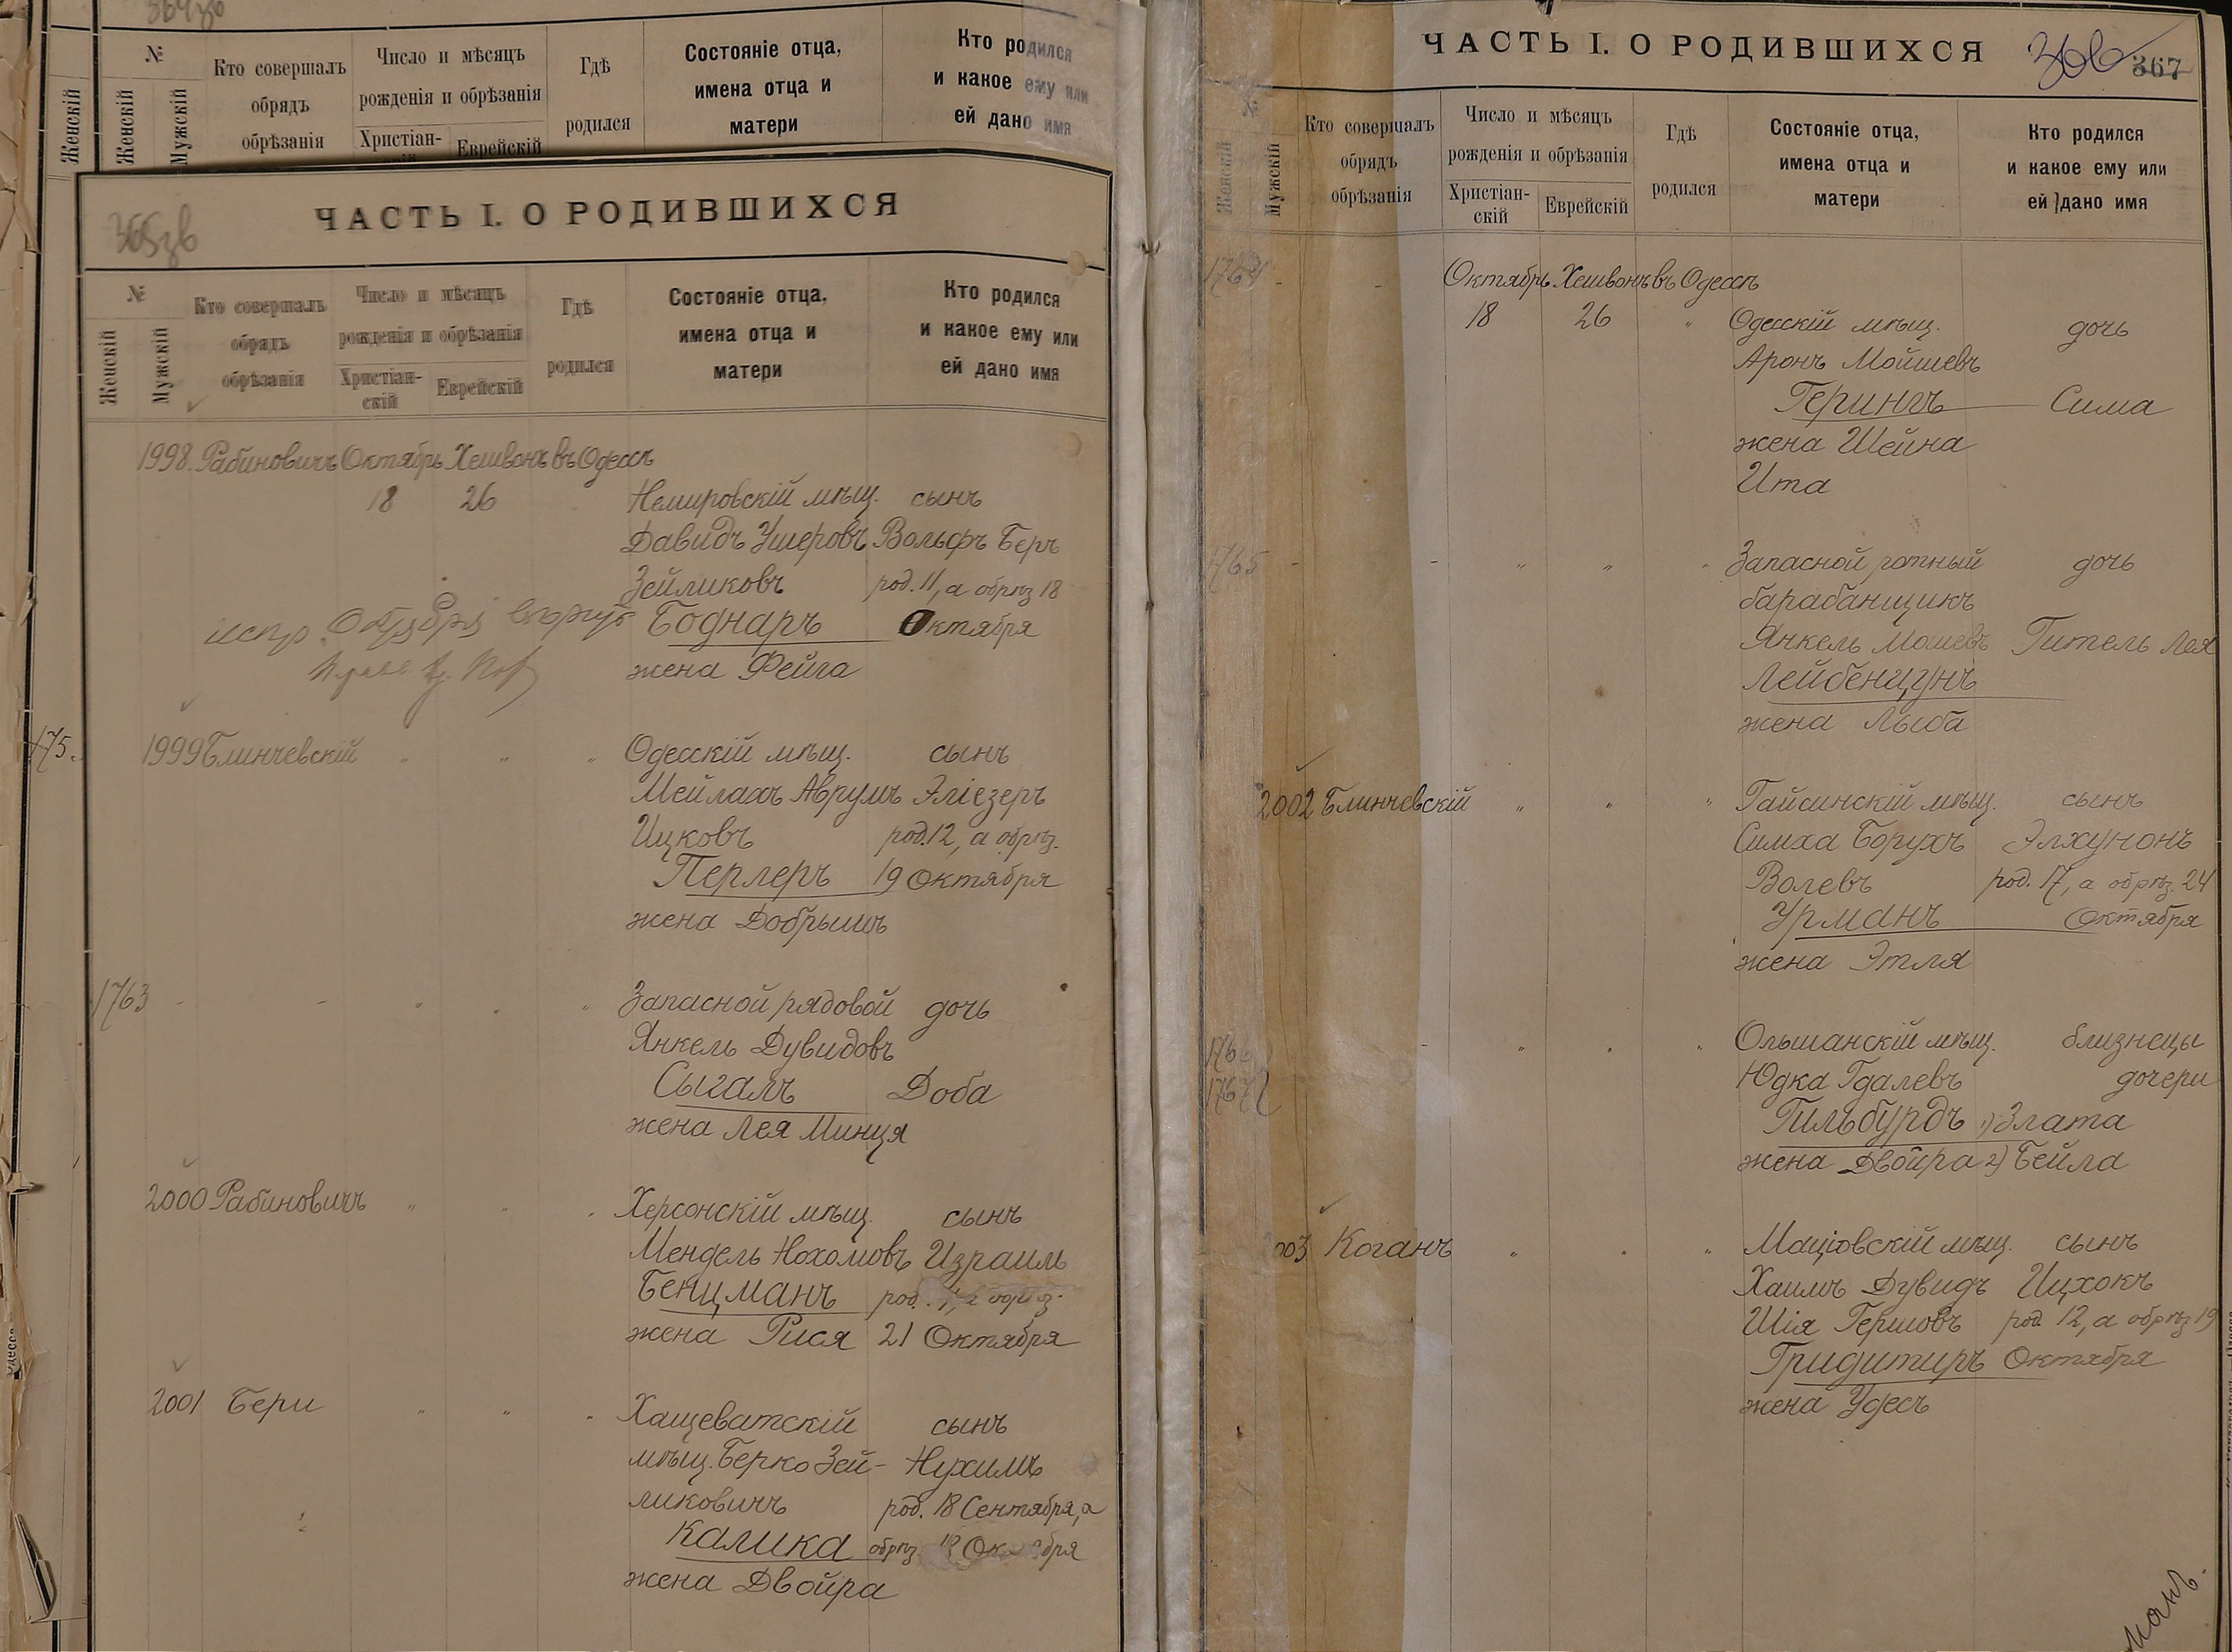 №
Женскій
Женскій
Мужскій
Кто совершалъ
обрядъ
обрѣзанія
Число и мѣсяцъ
рожденія и обрѣзанія
Христіан-
Еврейскій
Гдѣ
родился
Состояніе отца,
имена отца и
матери
Кто родился
и какое ему или
ей дано имя
ЧАСТЬ I. О РОДИВШИХСЯ
№
Женскій
Мужскій
Кто совершалъ
обрядъ
обрѣзанія
Число и мѣсяцъ
рожденія и обрѣзанія
Христіан-
скій
Еврейскій
Гдѣ
родился
Состояніе отца,
имена отца и
матери
Кто родился
и какое ему или
ей дано имя
1998. Рабиновичъ Октябрь Хешвонъ въ Одессѣ
18 26 Немировскій мѣщ. сынъ
Давидъ Ушеровъ Вольфъ Беръ
Зейликовъ род. 11, а обрѣз 18
Боднаръ Октября
жена Фейга
175.
1999 Блинчевскій " " " Одесскій мѣщ. сынъ
Мейлахъ Аврумъ Эліезеръ
Ицковъ род. 12, а обрѣз.
Перлеръ 19 Октября
жена Добрышъ
1763 - - " " " Запасной рядовой дочь
Янкель Дувидовъ
Сыгалъ Доба
жена Лея Минця
2000 Рабиновичъ " " " Херсонскій мѣщ. сынъ
Мендель Нохомовъ Израиль
Бенцманъ род.
жена Рися 21 Октября
2001 Бери " " " Хащеватскій сынъ
мѣщ. Берко Зей- Нухимъ
ликовичъ род. 18 Сентября, а
Калика обрѣз. Октября
жена Двойра
ЧАСТЬ I. О РОДИВШИХСЯ
366 367
№
Женскій
Мужскій
Кто совершалъ
обрядъ
обрѣзанія
Число и мѣсяцъ
рожденія и обрѣзанія
Христіан-
скій
Еврейскій
Гдѣ
родился
Состояніе отца,
имена отца и
матери
Кто родился
и какое ему или
ей дано имя
1764 - - Октябрь Хешвонъ въ Одессѣ
18 26 " Одесскій мѣщ. дочь
Аронъ Мойшевъ
Герингъ Сима
жена Шейна
Ита
1765 - - " " " Запасной ротный дочь
барабанщикъ
Янкель Мошевъ Гитель Лея
Лейбенцунъ
жена Лыба
2002 Блинчевскій " " " Гайсинскій мѣщ. сынъ
Симха Борухъ Элхунонъ
Волевъ род. 17, а обрѣз. 24
Урманъ Октября
жена Этля
1766 - " " " Ольшанскій мѣщ. близнецы
1767 Юдка Гдалевъ дочери
Гильбурдъ 1) Злата
жена Двойра 2) Бейла
003 Коганъ " " " Маціовскій мѣщ. сынъ
Хаимъ Дувидъ Ицхокъ
Шія Гершовъ род. 12, а обрѣз 19
Гридитиръ Октября
жена Удесъ